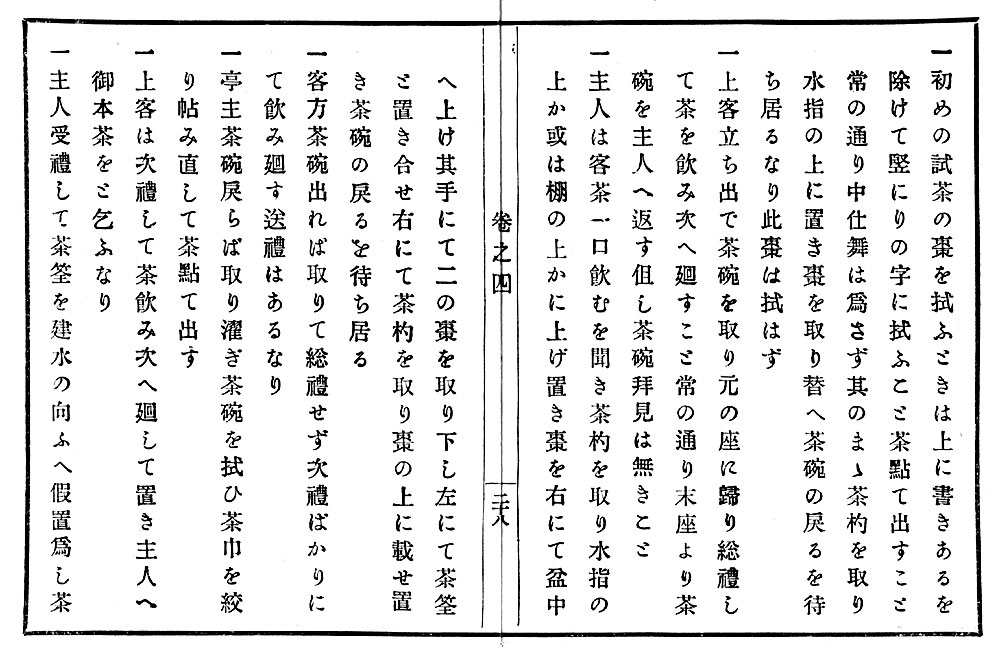 一初めの試茶の棗を拭ふときは上に書きあるを
除けて竪にりの字に拭ふこと茶點て出すこと
常の通り中仕舞は爲さず其のまゝ茶杓を取り
水指の上に置き棗を取り替へ茶碗の戻るを待
ち居るなり此棗は拭はず
一上客立ち出で茶碗を取り元の座に歸り総禮し
て茶を飲み次へ廻すこと常の通り末座より茶
碗を主人へ返す但し茶碗拜見は無きこと
一主人は客茶一口飲むを聞き茶杓を取り水指の
上か或は棚の上かに上げ置き棗を右にて盆中
卷之四
二十八
へ上け其手にて二の棗を取り下し左にて茶筌
と置き合せ右にて茶杓を取り棗の上に載せ置
き茶碗の戻るを待ち居る
一客方茶碗出れば取りて総禮せず次禮ばかりに
て飲み廻す送禮はあるなり
一亭主茶碗戻らば取り濯ぎ茶碗を拭ひ茶巾を絞
り帖み直して茶點て出す
一上客は次禮して茶飲み次へ廻して置き主人へ
御本茶をと乞ふなり
一主人受禮して茶筌を建水の向ふへ假置爲し茶